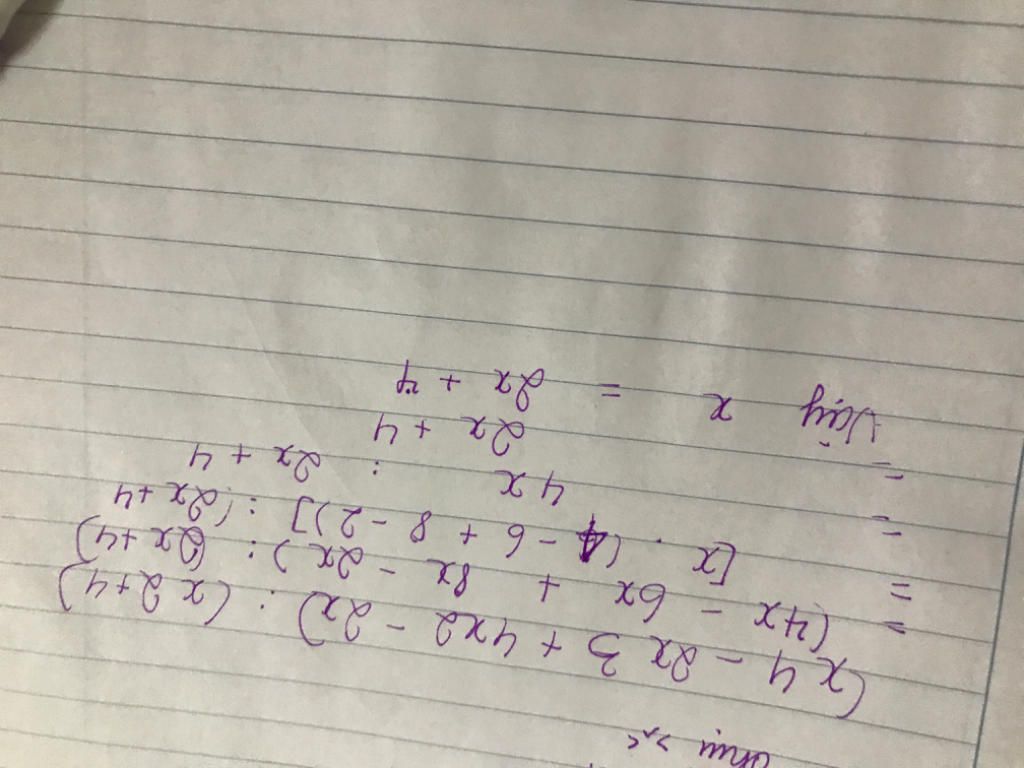 (x 4 - 2x 3 + 4x2 - 2x) : (x 2 + 4)
= (4x - 6x + 8x - 2x) : (2x + 4)
= [x . (4 - 6 + 8 - 2)] : (2x + 4
= 4x : 2x + 4
= 2x + 4
Vậy x = 2x + 4